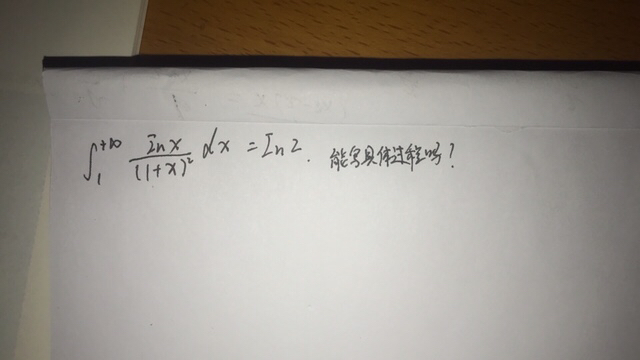 ∫₁^{+∞} \frac{ln x}{(1+x)²} dx = ln2. 能写具体过程吗?